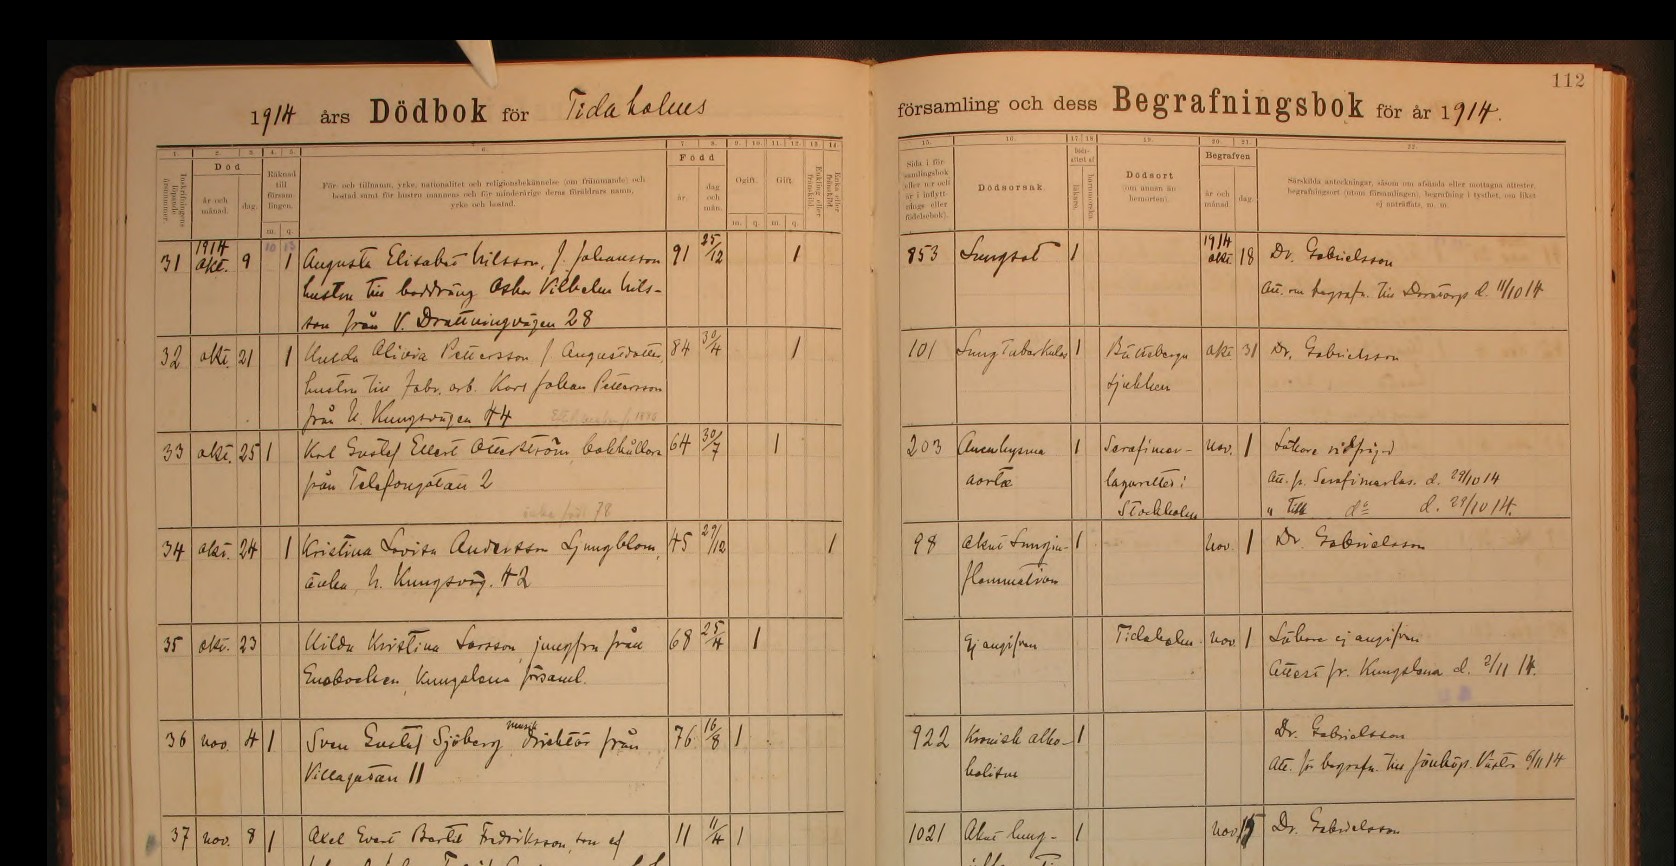 112
1914 års Dödbok för Tidaholms
församling och dess Begrafningsbok för år 1914.
1. 2. 3. 4. 5. 6. 7. 8. 9. 10. 11. 12. 13. 14.
15. 16. 17. 18. 19. 20. 21. 22.
Inskrifningens löpande årsnummer.
Död
år och månad.
dag.
Räknad till församlingen.
m. q.
För- och tillnamn, yrke, nationalitet och religionsbekännelse (om främmande) och
bostad samt för hustru mannens och för minderårige deras föräldrars namn,
yrke och bostad.
Född
år.
dag och mån.
Ogift.
m. q.
Gift.
m. q.
Enkling eller frånskild.
Enka eller frånskild.
Sida i församlingsbok
Dödsorsak
läkare.
Dödsort
(om annan än hemorten).
Begrafven
år och månad
dag
Särskilda anteckningar, såsom om afsända eller mottagna attester,
begrafningsort (utom församlingen), begrafning i tysthet, om liket
ej anträffats, m. m.
31 1914 okt. 9 1 Augusta Elisabet Nilsson, f. Johansson 91 25/12 1
hustru till Oskar Vilhelm Nils-
son från V. Drottningvägen 28
853 Lungsot 1 1914 okt 18 Dr. Gabrielsson
att. om begrafn. till d. 11/10 14
32 okt. 21 1 Hulda Olivia Pettersson f. Augustdotter, 84 30/4 1
hustru till fabr. arb. Karl Johan Pettersson
från N. Kungsvägen 44
101 Lung Tuberkulos 1 okt 31 Dr. Gabrielsson
33 okt. 25 1 Karl Gustaf Otterström bokhållare 64 30/7 1
från Telefongatan 2
203 aortæ 1 Serafimer-
lasarettet i
Stockholm
nov. 1 Läkare
Att. fr. Serafimerlas. d. 29/10 14
" Till do d. 29/10 14.
34 okt. 24 1 Kristina Lovisa Andersson Ljungblom, 45 29/12 1
änka, N. Kungsväg. 42
98 akut Lungin-
flammation 1 nov. 1 Dr. Gabrielsson
35 okt. 23 Hilda Kristina Larsson, jungfru från 68 25/4 1
Kungslena församl.
Ej angifven Tidaholm nov. 1 Läkare ej angifven
Attest fr. Kungslena d. 2/11 14.
36 nov. 4 1 Sven Gustaf Sjöberg musik direktör från 76 16/8 1
Villagatan 11
922 Kronisk alko-
holism 1 Dr. Gabrielsson
Att. för begrafn. till Jönköp. Västra 6/11 14
37 nov. 8 1 Axel Evert Bertil Fredriksson, son af 11 11/4 1
1021 Akut lung- 1 nov. 15 Dr. Gabrielsson